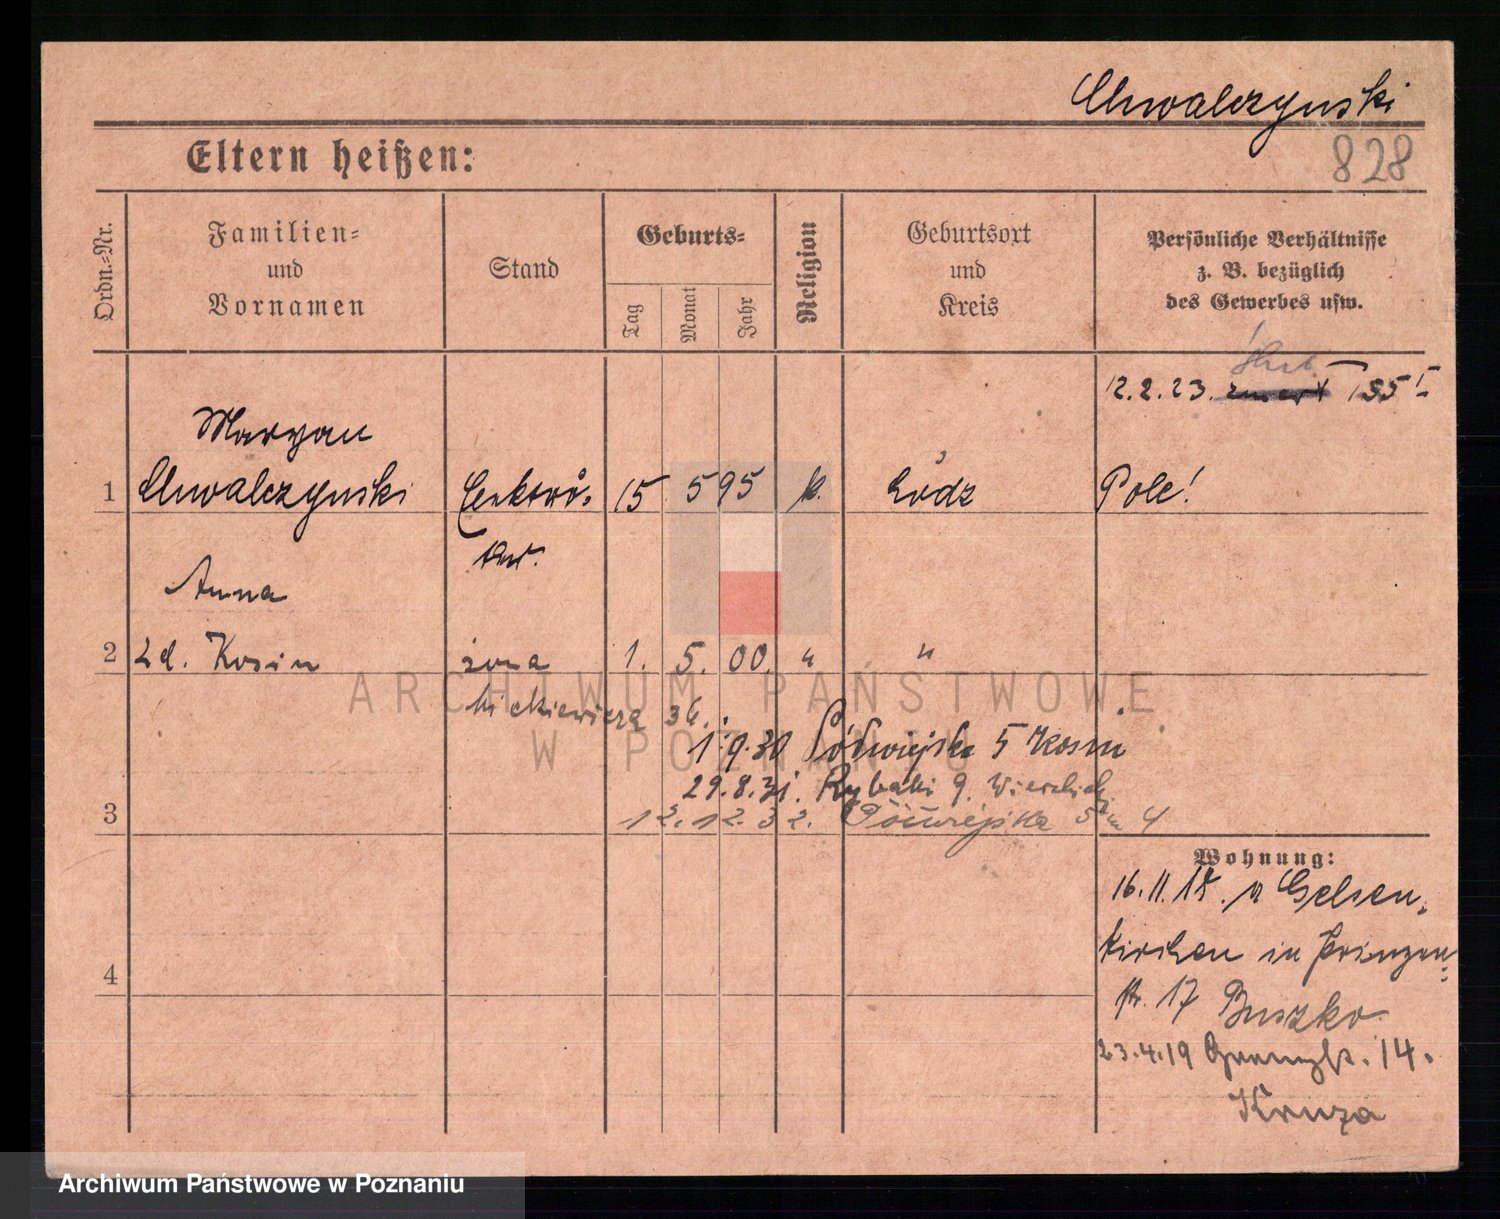 Chwalczynski
828
Eltern heißen:
Ordn.-Nr.
Familien-
und
Vornamen
Stand
Geburts-
Tag
Monat
Jahr
Religion
Geburtsort
und
Kreis
Persönliche Verhältnisse
z. B. bezüglich
des Gewerbes usw.
12.2.23.
Maryan
1 Chwalczynski 15 5 95 k. Łódz Pole!
Anna
2 Kosin żona 1. 5. 00. " "
Mickiewicza 36.
1.9.30 Półwiejska 5 Kosin
29.8.31. Rybaki 9.
3 12.12.32. Półwiejska 5
Wohnung:
16.11.18. Gelsen-
kirchen in Prinzen-
str. 17 Buszko
4
23.4.19 14.
Kruza
ARCHIWUM PAŃSTWOWE
W POZNANIU
Archiwum Państwowe w Poznaniu